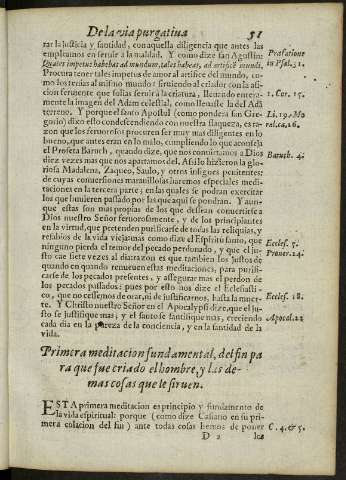 De la via purgatiua 51
rar la justicia y santidad, con aquella diligencia que antes las
empleamos en seruir a la maldad. Y como dize san Agustin:
Præfatione
Quales impetus habebas ad mundum, tales habeas, ad artificē mundi.
in Psal. 31.
Procura tener tales impetus de amor al artifice del mundo, co-
mo los tenías al mismo mundo siruiendo al criador con la afi-
cion feruiente que solias seruir a la criatura, lleuando entera-
1. Cor. 15.
mente la imagen del Adam celestial, como lleuaste la del Adā
terreno. Y porque el santo Apostol (como pondera san Gre-
Li. 19. Mo
gorio) dixo esto condescendiendo con nuestra flaqueza, es ra-
ral. ca. 16.
zon que los feruorosos procuren ser muy mas diligentes en lo
bueno, que antes eran en lo malo, cumpliendo lo que aconseja
el Profeta Baruch, quando dize, que nos conuirtamos a Dios
Baruch. 4.
diez vezes mas que nos apartamos del. Assi lo hizieron la glo-
riosa Madalena, Zaqueo, Saulo, y otros insignes penitentes:
de cuyas conuersiones marauillosas haremos especiales medi-
taciones en la tercera parte; en las quales se podran exercitar
los que huuieren passado por las que aqui se pondran. Y aun-
que estas son mas propias de los que dessean conuertirse a
Dios nuestro Señor feruorosamente, y de los principiantes
en la virtud, que pretenden purificarse de todas las reliquias, y
resabios de la vida viejamas como dize el Espiritu santo, que
Eccles. 5.
ninguno pierda el temor del pecado perdonado, y que el ju-
Prouer. 24.
sto cae siete vezes al dia: razon es que tambien los justos de
quando en quando renueuen estas meditaciones, para purifi-
carse de los pecados presentes, y assegurar mas el perdon de
los pecados passados: pues por esto nos dize el Eclesiasti-
co, que no cessemos de orar, ni de justificarnos, hasta la muer-
Eccles. 18.
te. Y Christo nuestro Señor en el Apocalypsi dize, que el ju-
sto se justifique mas, y el santo se santifique mas, creciendo
Apocal. 22
cada dia en la pureza de la conciencia, y en la santidad de la
vida.
Primera meditacion fundamental, del fin pa
ra que fue criado el hombre, y las de-
mas cosas que le siruen.
ESTA primera meditacion es principio y fundamento de
la vida espiritual: porque (como dize Casiano en su pri-
mera colacion del fin) ante todas cosas hemos de poner
C. 4. & 5.
D 2 los